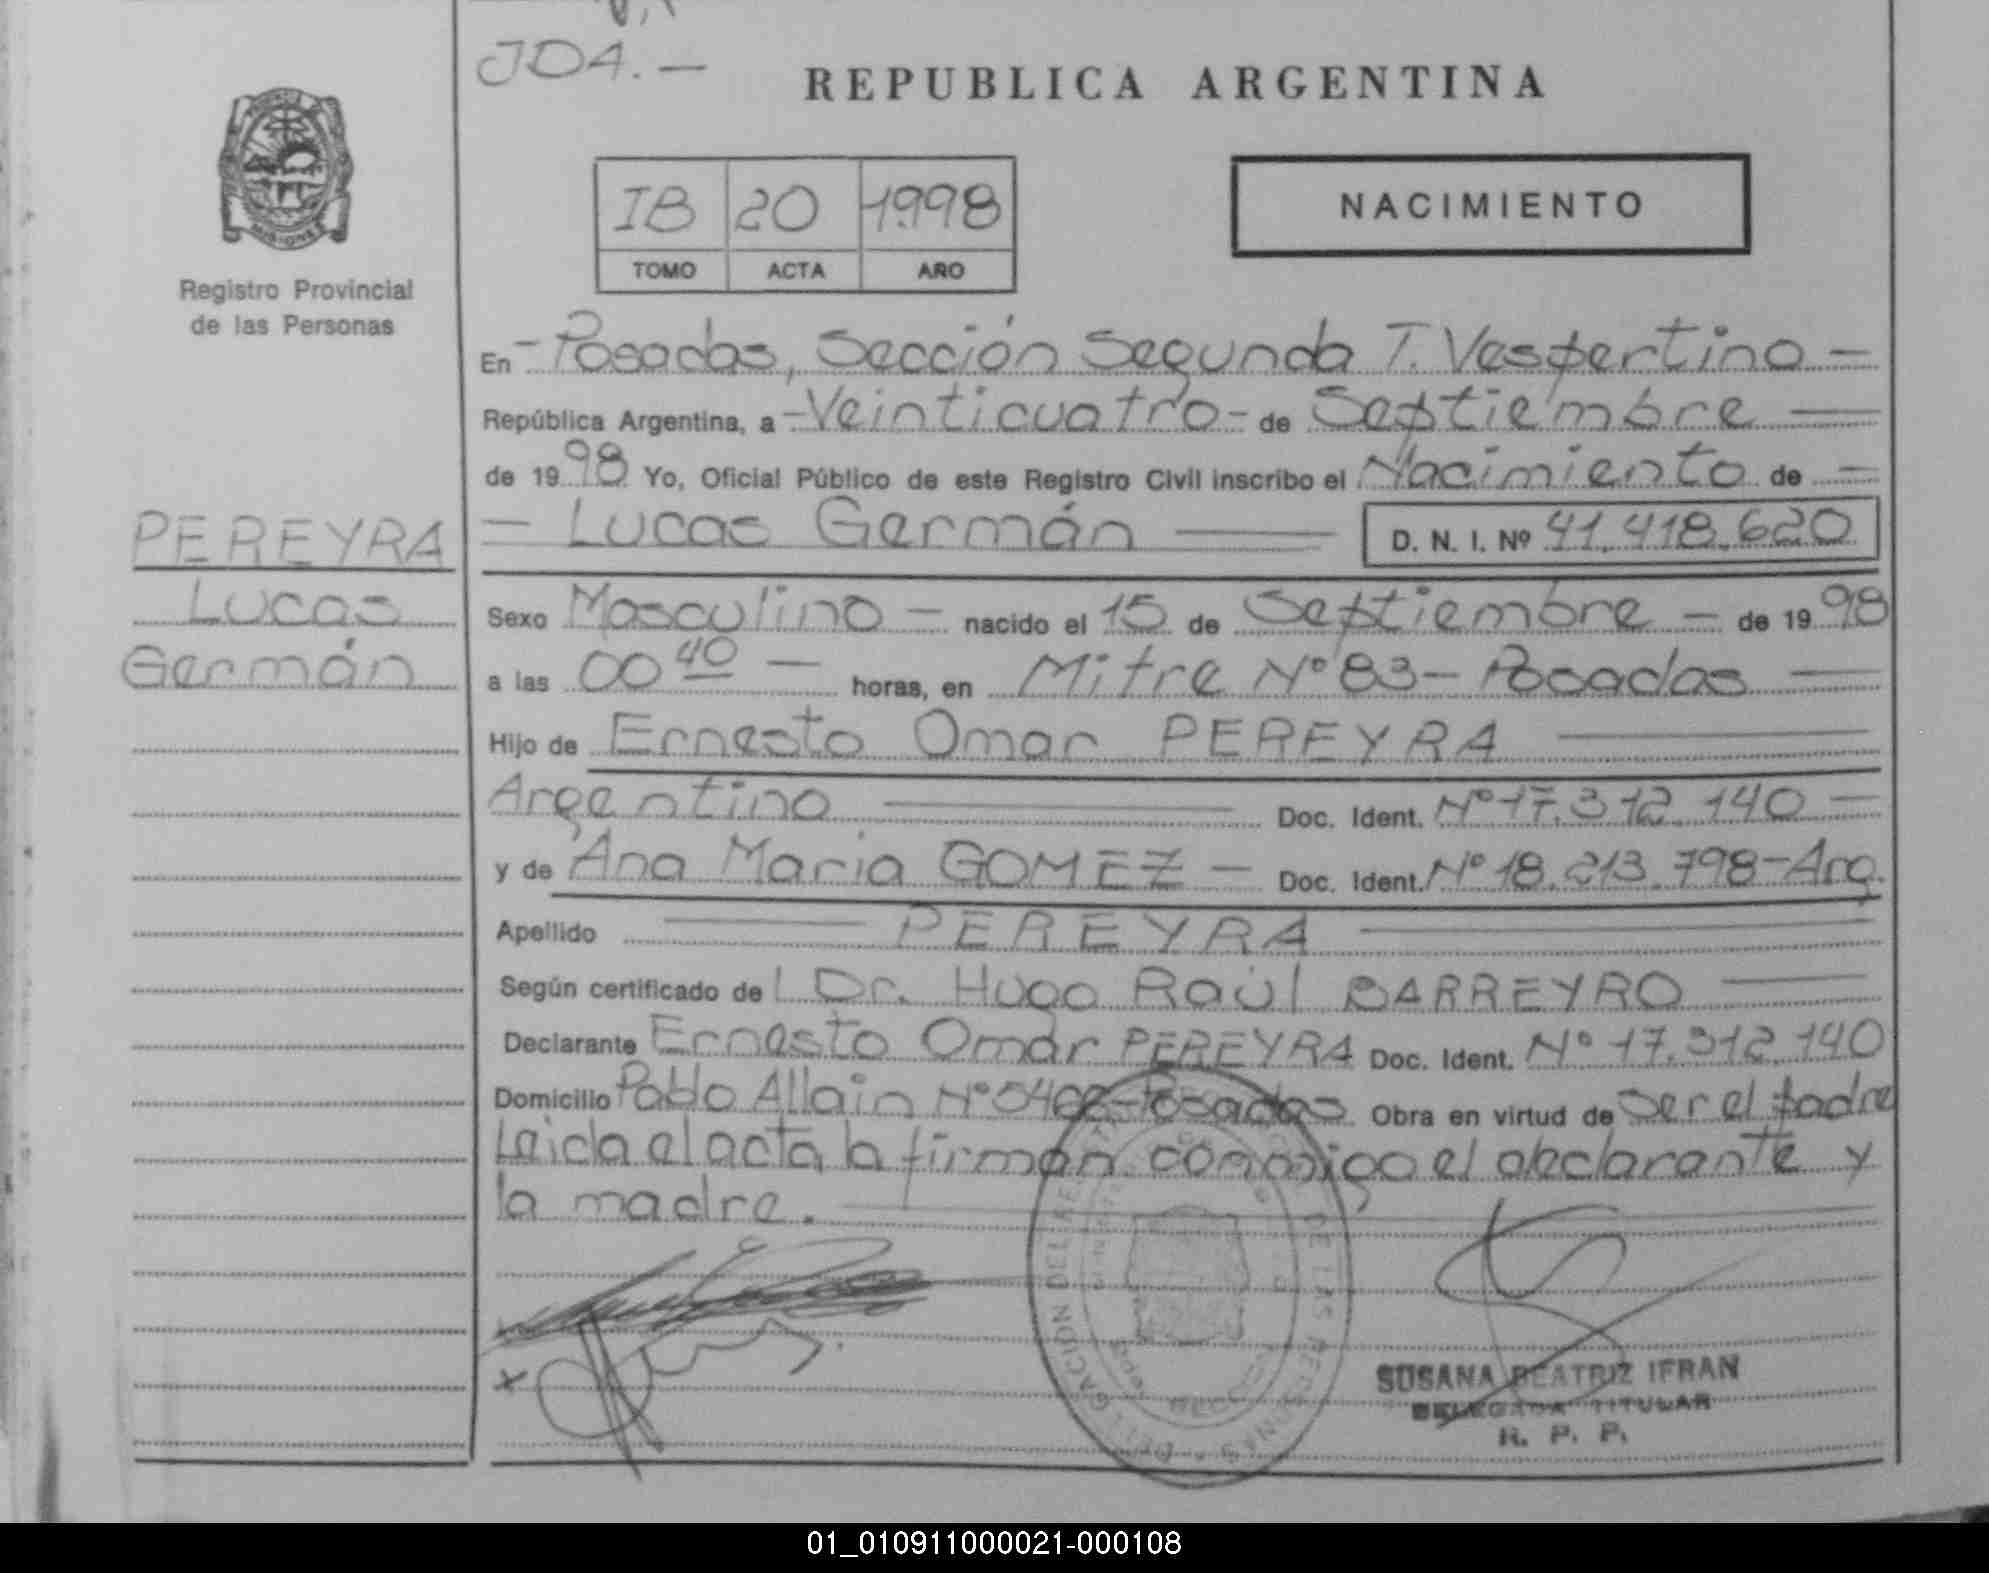 JDA.-
REPUBLICA ARGENTINA
MISIONES
Registro Provincial
de las Personas
IB 20 1998
TOMO ACTA AÑO
NACIMIENTO
En - Posadas, Sección Segunda T. Vespertino -
República Argentina, a - Veinticuatro - de Septiembre
de 1998 Yo, Oficial Público de este Registro Civil inscribo el Nacimiento de -
- Lucas Germán D. N. I. Nº 41.418.620
PEREYRA
Lucas
Germán
Sexo Masculino - nacido el 15 de Septiembre - de 1998
a las 00 40 - horas, en Mitre Nº 83 - Posadas
Hijo de Ernesto Omar PEREYRA
Argentino Doc. Ident. Nº 17.312.140 -
y de Ana Maria GOMEZ - Doc. Ident. Nº 18.213.798-Arg.
Apellido PEREYRA
Según certificado de l Dr. Hugo Raúl BARREYRO
Declarante Ernesto Omar PEREYRA Doc. Ident. Nº 17.312.140
Domicilio Pablo Allain Nº Posadas. Obra en virtud de ser el padre
Leida el acta la firman conmigo el declarante y
la madre.
DELEGACION DE LAS PERSONAS
SUSANA BEATRIZ IFRAN
DELEGADA TITULAR
R. P. P.
01_010911000021-000108